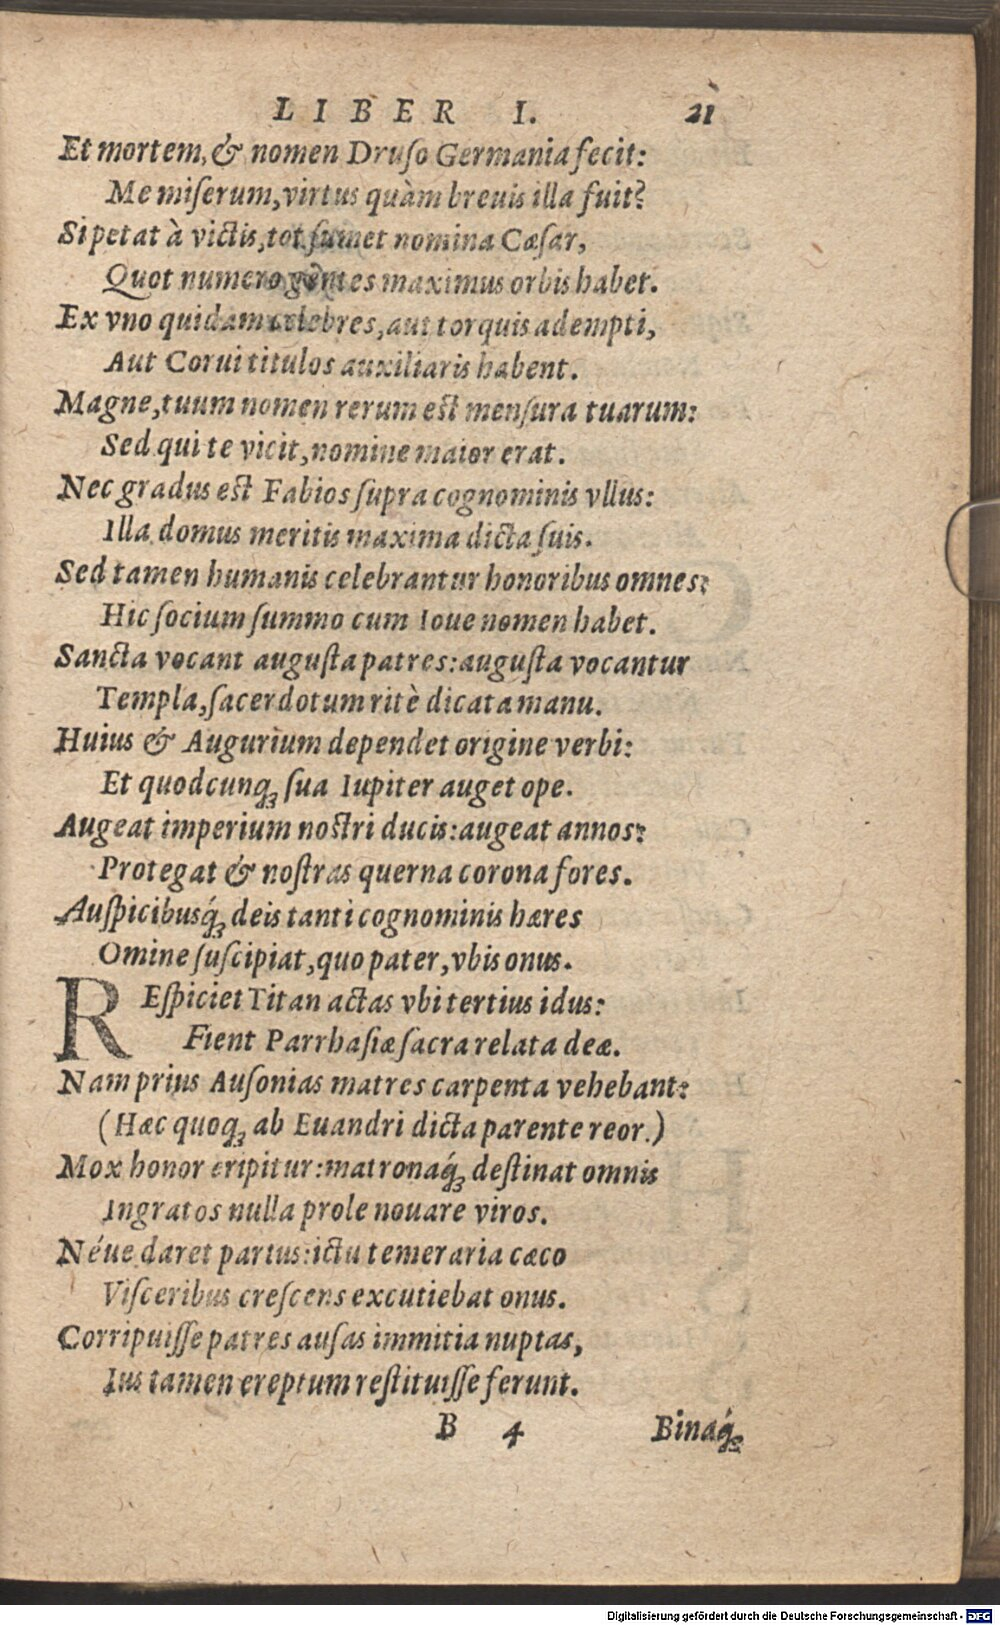 LIBER I. 21
Et mortem, & nomen Druſo Germania fecit:
Me miſerum, virtus quàm breuis illa fuit?
Si petat à victis, tot ſumet nomina Cæſar,
Quot numero gentes maximus orbis habet.
Ex vno quidam celebres, aut torquis adempti,
Aut Corui titulos auxiliaris habent.
Magne, tuum nomen rerum eſt menſura tuarum:
Sed qui te vicit, nomine maior erat.
Nec gradus eſt Fabios ſupra cognominis vllus:
Illa domus meritis maxima dicta ſuis.
Sed tamen humanis celebrantur honoribus omnes:
Hic ſocium ſummo cum Ioue nomen habet.
Sancta vocant auguſta patres: auguſta vocantur
Templa, ſacerdotum ritè dicata manu.
Huius & Augurium dependet origine verbi:
Et quodcunq; ſua Iupiter auget ope.
Augeat imperium noſtri ducis: augeat annos:
Protegat & noſtras querna corona fores.
Auſpicibusq́; deis tanti cognominis hæres
Omine ſuſcipiat, quo pater, vbis onus.
REſpiciet Titan actas vbi tertius idus:
Fient Parrhaſiæ ſacra relata deæ.
Nam prius Auſonias matres carpenta vehebant:
(Hæc quoq; ab Euandri dicta parente reor.)
Mox honor eripitur: matronaq́; deſtinat omnis
Ingratos nulla prole nouare viros.
Néue daret partus: ictu temeraria cæco
Viſceribus creſcens excutiebat onus.
Corripuiſſe patres auſas immitia nuptas,
Ius tamen ereptum reſtituiſſe ferunt.
B 4 Binaq́;
Digitalisierung gefördert durch die Deutsche Forschungsgemeinschaft - DFG